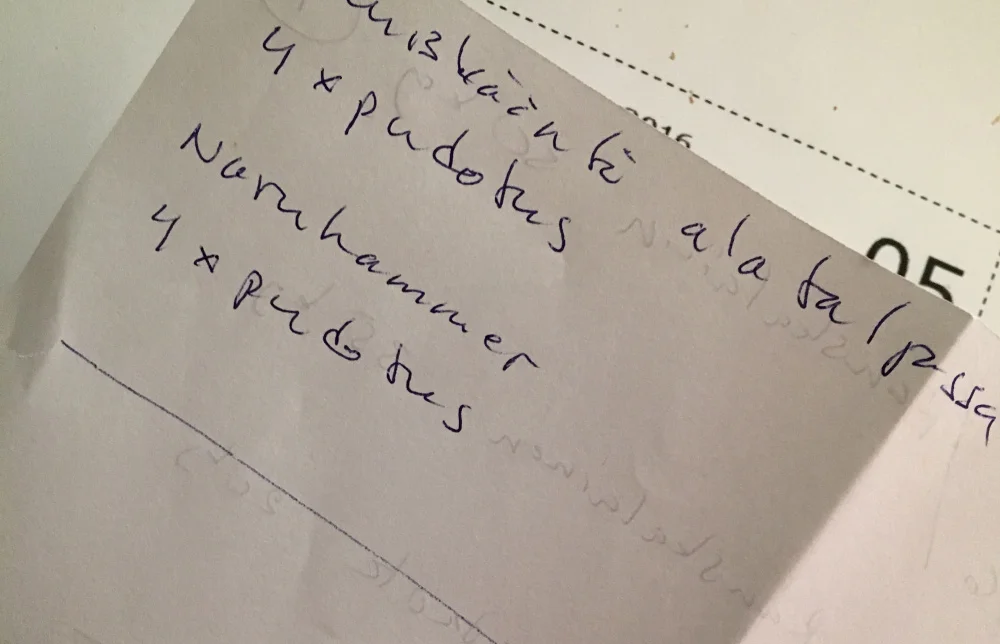 uiskääntö alataljassa
4 x pudotus
Naruhammer
4 x pudotus
2016
05